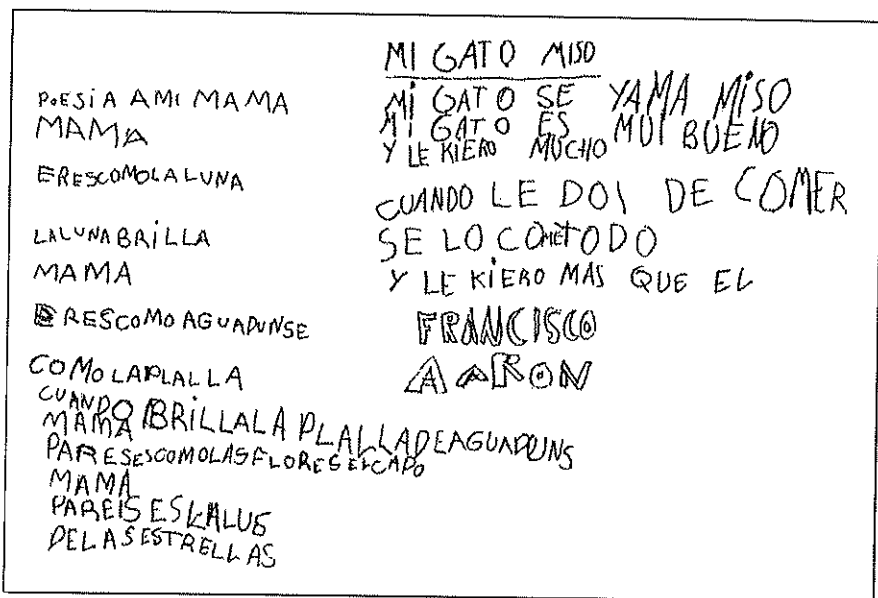 POESIA AMI MAMA
MAMA
ERESCOMOLALUNA
LALUNABRILLA
MAMA
ERESCOMOAGUADUNSE
COMOLAPLALLA
CUANDO BRILLALAPLALLADEAGUADUNS
MAMA
PARESESCOMOLASFLORESELCAPO
MAMA
PAREIS ESLALUS
DELASESTRELLAS
MI GATO MISO
MI GATO SE YAMA MISO
MI GATO ES MUI BUENO
Y LE KIERO MUCHO
CUANDO LE DOI DE COMER
SE LO COMETODO
Y LE KIERO MAS QUE EL
FRANCISCO
AARON